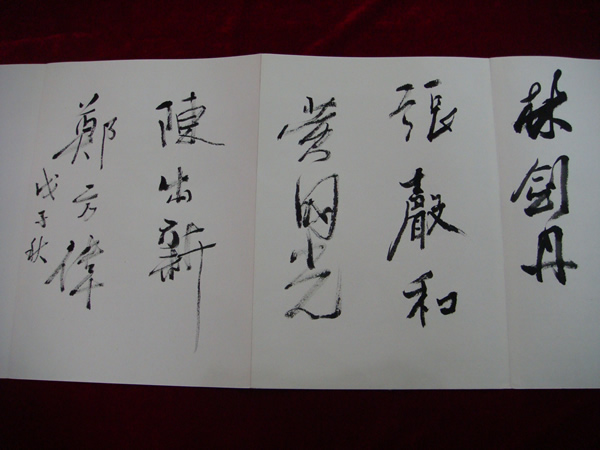 林劍丹
張聲和
黄國光
陳出新
鄭方偉
戊子秋